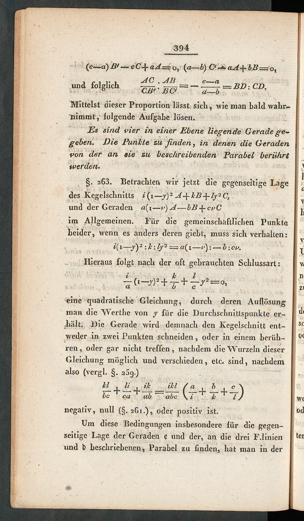 394
(c—a) B' — cC + aA = 0, (a—b) C' — aA + bB = 0,
und folglich AC . AB / CB' . BC' = — c—a / a—b = BD : CD.
Mittelst dieser Proportion lässt sich, wie man bald wahr-
nimmt, folgende Aufgabe lösen.
Es sind vier in einer Ebene liegende Gerade ge-
geben. Die Punkte zu finden, in denen die Geraden
von der an sie zu beschreibenden Parabel berührt
werden.
§. 263. Betrachten wir jetzt die gegenseitige Lage
des Kegelschnitts i(1—y)² A + kB + ly² C,
und der Geraden a(1—v) A — bB + cvC
im Allgemeinen. Für die gemeinschaftlichen Punkte
beider, wenn es anders deren giebt, muss sich verhalten:
i(1—y)² : k : ly² = a(1—v) : —b : cv.
Hieraus folgt nach der oft gebrauchten Schlussart:
i/a (1—y)² + k/b + l/c y² = 0,
eine quadratische Gleichung, durch deren Auflösung
man die Werthe von y für die Durchschnittspunkte er-
hält. Die Gerade wird demnach den Kegelschnitt ent-
weder in zwei Punkten schneiden, oder in einem berüh-
ren, oder gar nicht treffen, nachdem die Wurzeln dieser
Gleichung möglich und verschieden, etc. sind, nachdem
also (vergl. §. 259.)
kl/bc + li/ca + ik/ab = ikl/abc (a/i + b/k + c/l)
negativ, null (§. 261.), oder positiv ist.
Um diese Bedingungen insbesondere für die gegen-
seitige Lage der Geraden c und der, an die drei F.linien
und b beschriebenen, Parabel zu finden, hat man in der